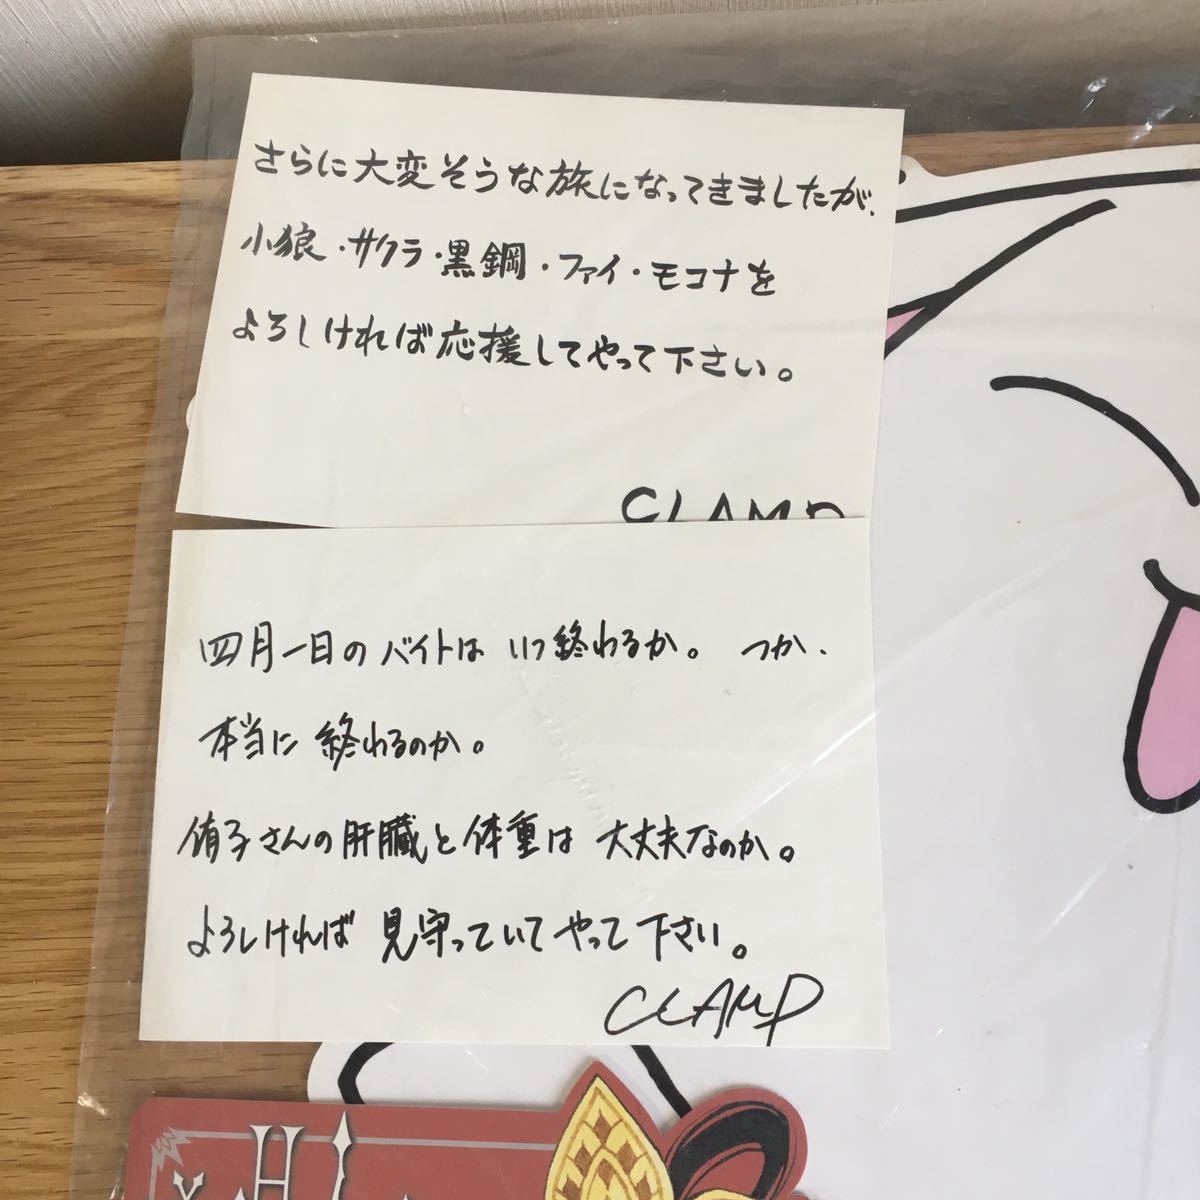 さらに大変そうな旅になってきましたが、
小狼・サクラ・黒鋼・ファイ・モコナを
よろしければ応援してやって下さい。
CLAMP
四月一日のバイトは いつ終わるか。 つか、
本当に 終わるのか。
侑子さんの肝臓と体重は 大丈夫なのか。
よろしければ 見守っていてやって下さい。
CLAMP